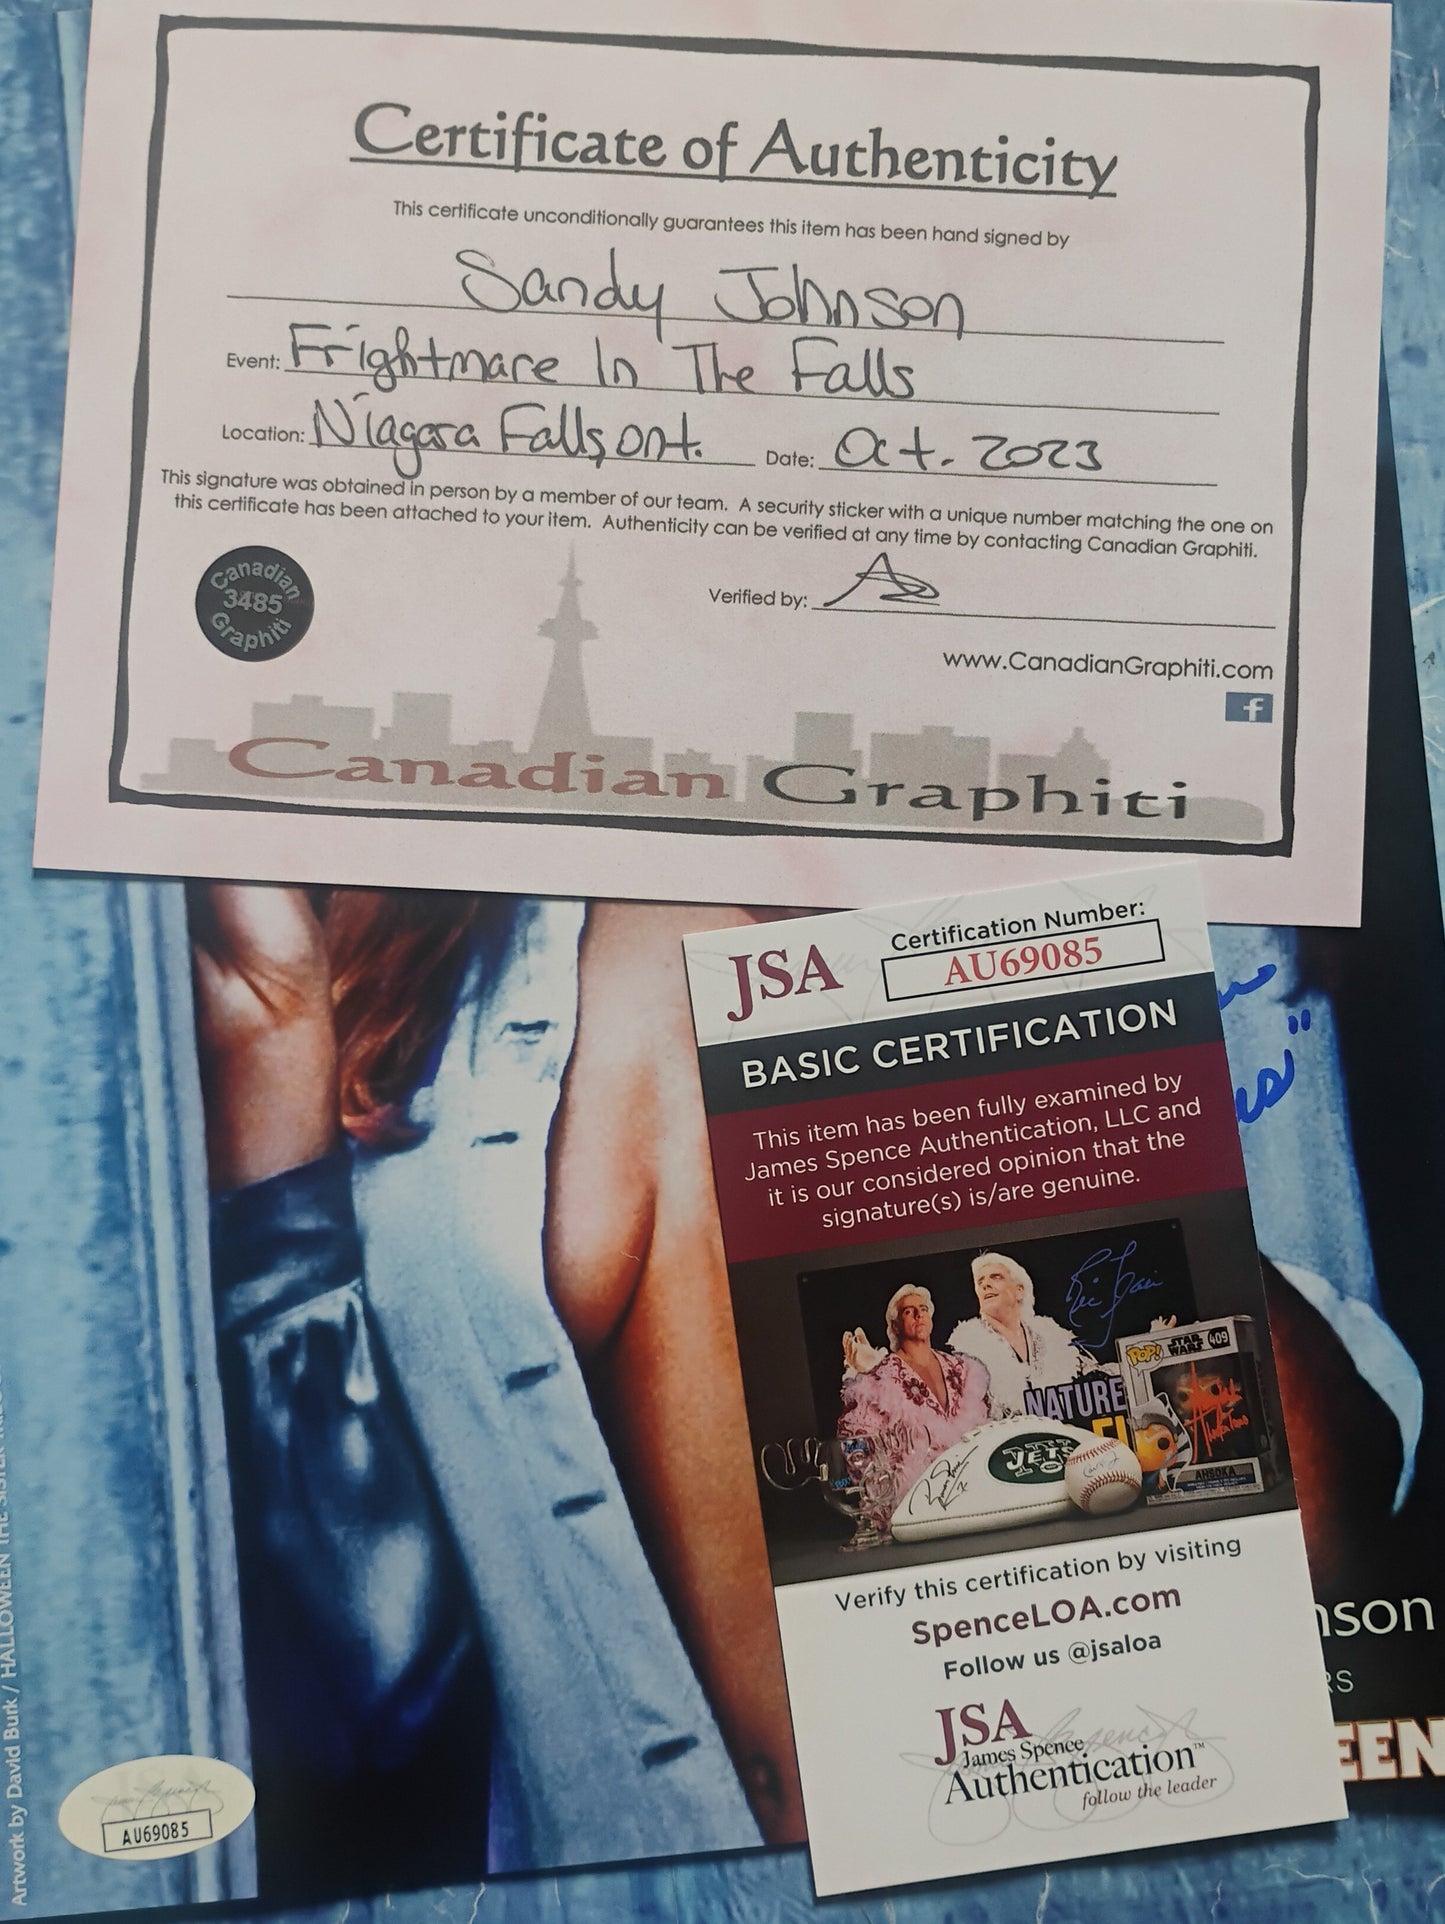 Certificate of Authenticity
This certificate unconditionally guarantees this item has been hand signed by
Sandy Johnson
Event: Frightmare In The Falls
Location: Niagara Falls, ont. Date: Oct. 2023
This signature was obtained in person by a member of our team. A security sticker with a unique number matching the one on
this certificate has been attached to your item. Authenticity can be verified at any time by contacting Canadian Graphiti.
Canadian
3485
Graphiti
Verified by:
www.CanadianGraphiti.com
f
Canadian Graphiti
JSA
Certification Number:
AU69085
BASIC CERTIFICATION
This item has been fully examined by
James Spence Authentication, LLC and
it is our considered opinion that the
signature(s) is/are genuine.
POP!
STAR
WARS
409
NATURE
JETS
AHSOKA
Verify this certification by visiting
SpenceLOA.com
Follow us @jsaloa
JSA
James Spence
Authentication™
follow the leader
nson
RS
EEN
Artwork by David Burk / HALLOWEEN THE SISTER
AU69085